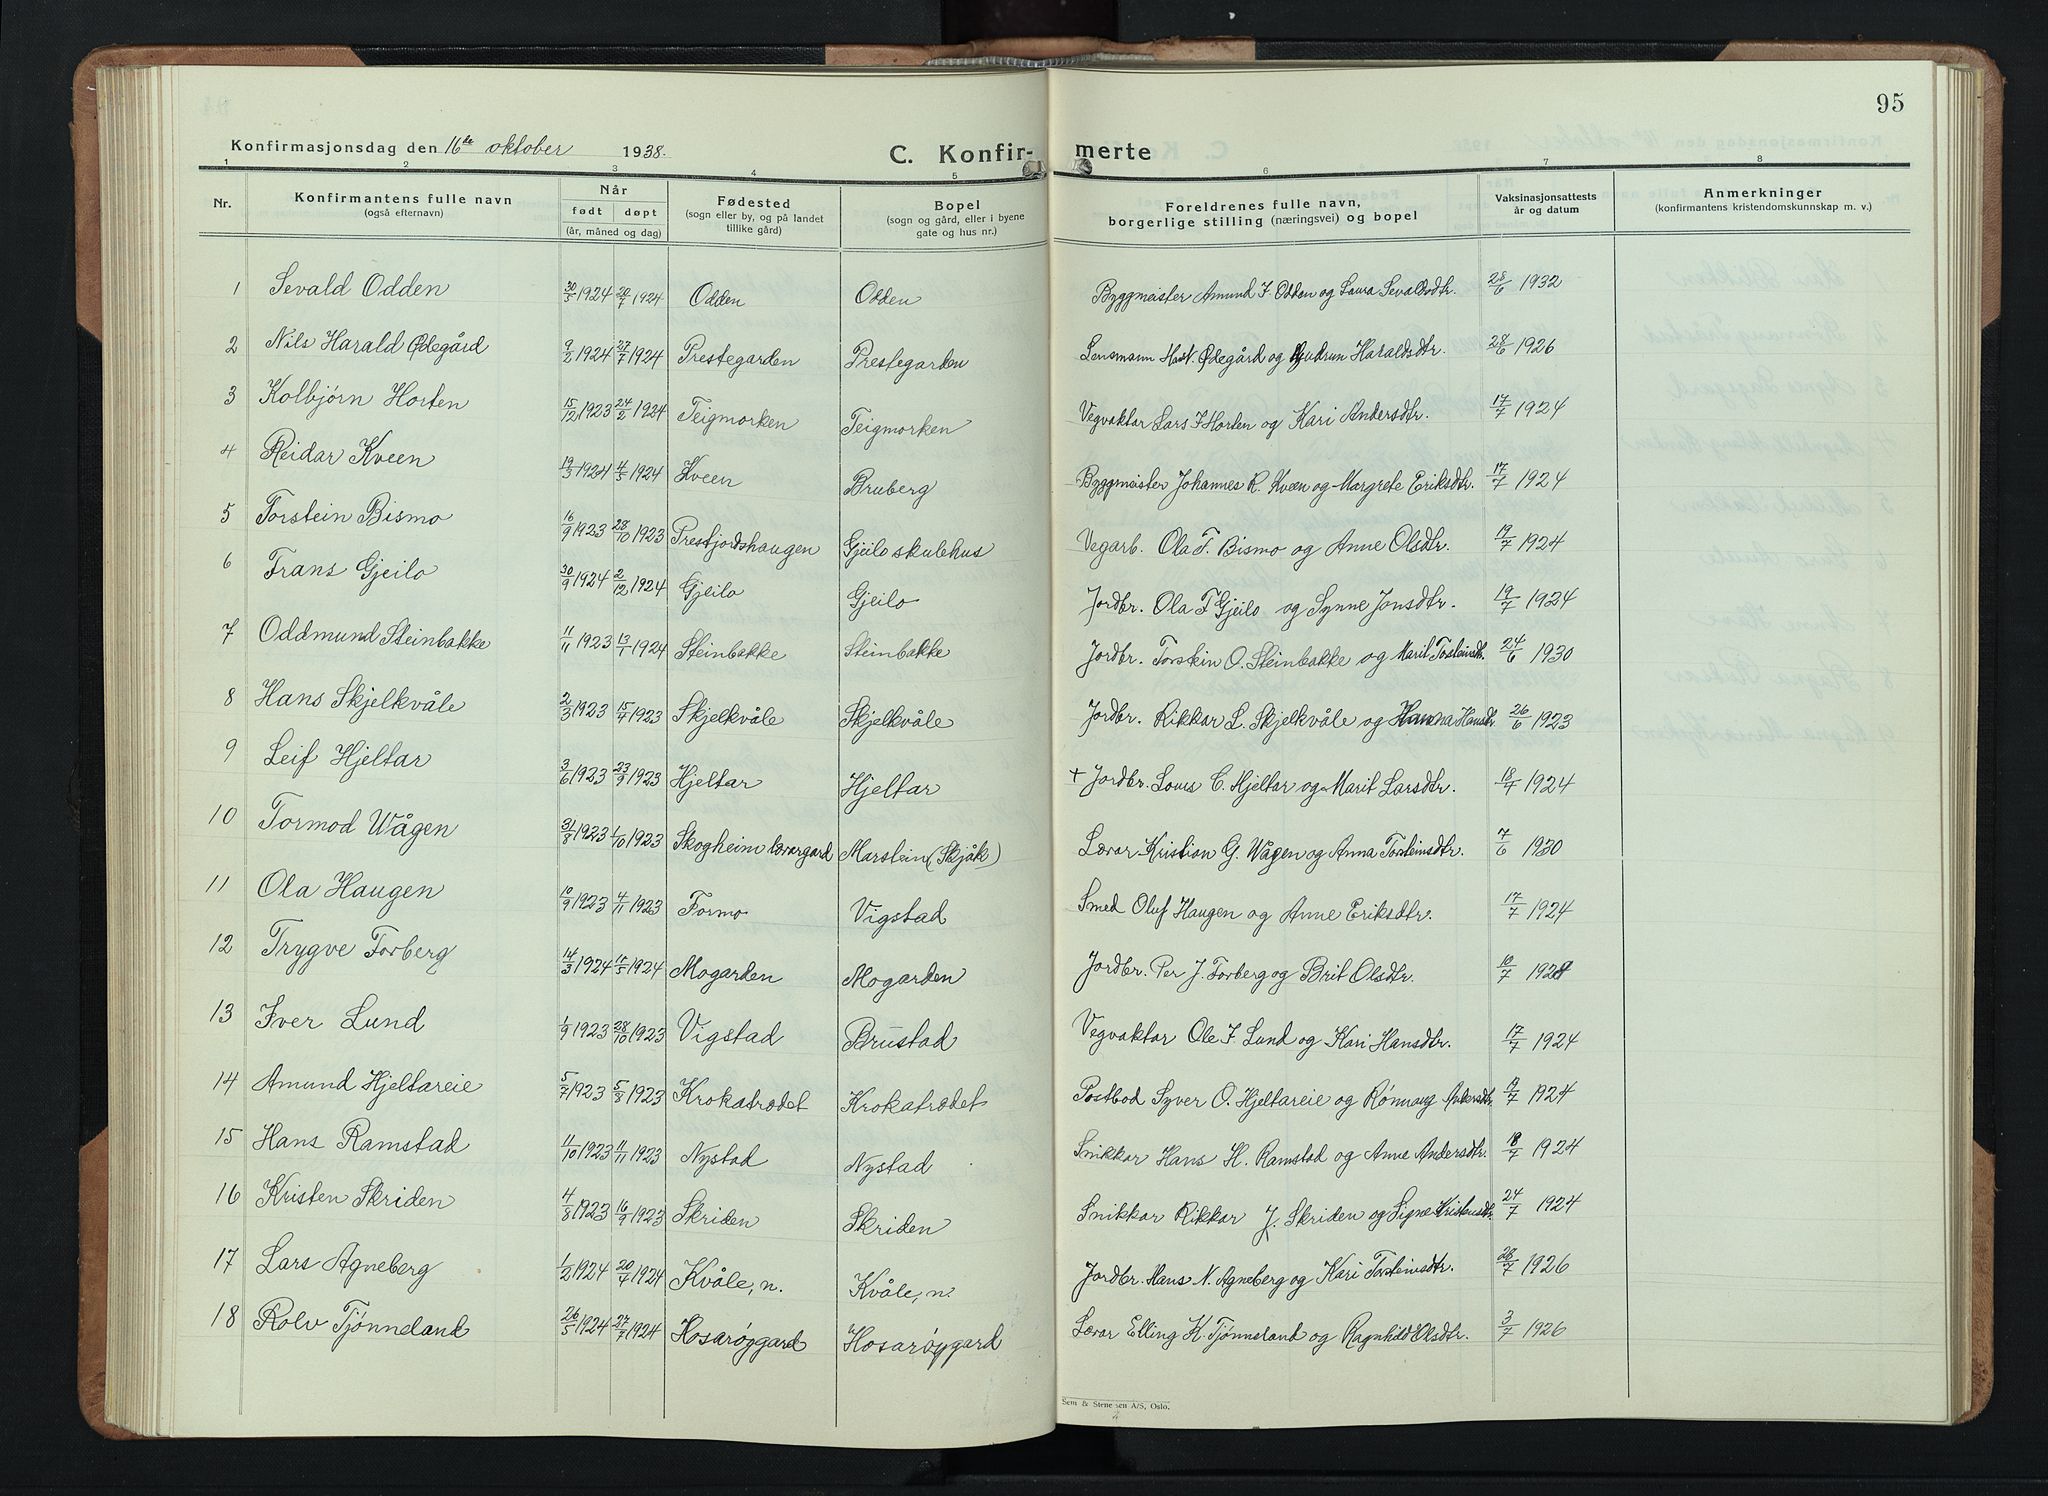 95
Konfirmasjonsdag den 16de oktober 1938. C. Konfir- merte
1 2 3 4 5 6 7 8
Nr. Konfirmantens fulle navn (også efternavn) Når født døpt (år, måned og dag) Fødested (sogn eller by, og på landet tillike gård) Bopel (sogn og gård, eller i byene gate og hus nr.) Foreldrenes fulle navn, borgerlige stilling (næringsvei) og bopel Vaksinasjonsattests år og datum Anmerkninger (konfirmantens kristendomskunnskap m. v.)
1 Sevald Odden 30/5 1924 20/7 1924 Odden Odden Byggmeister Amund J. Odden og Laura Sevaldsdtr. 28/6 1932
2 Nils Harald Ødegård 9/2 1924 27/7 1924 Prestegarden Prestegarden Lensmann H. N. Ødegård og Gudrun Haraldsdtr. 28/6 1926
3 Kolbjørn Horten 15/12 1923 24/2 1924 Teigmorken Teigmorken Vegvaktar Lars J Horten og Kari Andersdtr. 17/7 1924
4 Reidar Kveen 19/3 1924 4/5 1924 Kveen Bruberg Byggmeister Johannes R. Kveen og Margrete Eriksdtr. 17/7 1924
5 Torstein Bismo 16/9 1923 28/10 1923 Prestjordshaugen Gjeilo skulehus Vegarb. Ola T. Bismo og Anne Olsdtr. 19/7 1924
6 Frans Gjeilo 30/9 1924 2/12 1924 Gjeilo Gjeilo Jordbr. Ola F Gjeilo og Synne Jonsdtr. 19/7 1924
7 Oddmund Steinbakke 11/11 1923 13/7 1924 Steinbakke Steinbakke Jordbr. Torstein O. Steinbakke og Marit Torsteinsdtr. 24/6 1930
8 Hans Skjelkvåle 2/3 1923 15/4 1923 Skjelkvåle Skjelkvåle Jordbr. Rikkar L. Skjelkvåle og Hanna Hansdtr. 26/6 1923
9 Leif Hjeltar 3/6 1923 23/9 1923 Hjeltar Hjeltar + Jordbr. Louis C. Hjeltar og Marit Larsdtr. 18/7 1924
10 Tormod Wågen 31/8 1923 1/10 1923 Skogheim lærargard Marstein (Skjåk) Lærar Kristian G. Wågen og Anna Torsteinsdtr. 7/6 1930
11 Ola Haugen 10/9 1923 4/11 1923 Formo Vigstad Smed Oluf Haugen og Anne Eriksdtr. 17/7 1924
12 Trygve Forberg 14/3 1924 11/5 1924 Mogarden Mogarden Jordbr. Per J. Forberg og Brit Olsdtr. 10/7
13 Iver Lund 1/9 1923 28/10 1923 Vigstad Brustad Vegvaktar Ole J. Lund og Kari Hansdtr. 17/7 1924
14 Amund Hjeltareie 5/7 1923 5/8 1923 Krokatrødet Krokatrødet Postbod Syver O. Hjeltareie og Rønnaug Andersdtr. 19/7 1924
15 Hans Ramstad 4/10 1923 11/11 1923 Nystad Nystad Snikkar Hans H. Ramstad og Anne Andersdtr. 18/7 1924
16 Kristen Skriden 4/8 1923 16/9 1923 Skriden Skriden Snikkar Rikkar J. Skriden og Signe Kristensdtr. 24/7 1924
17 Lars Agneberg 1/2 1924 20/4 1924 Kvåle, n. Kvåle, n. Jordbr. Hans N. Agneberg og Kari Torsteinsdtr. 28/7 1926
18 Rolv Tjønneland 26/5 1924 27/7 1924 Hosarøygard Hosarøygard Lærar Elling K. Tjønneland og Ragnhild Olsdtr. 3/7 1926
Sem & Stenersen A/S, Oslo.